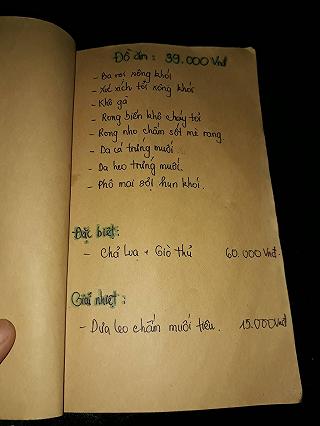 Đồ ăn : 39.000 Vnđ
- Ba rọi xông khói
- Xúc xích tỏi xông khói
- Khô gà
- Rong biển khô cháy tỏi
- Rong nho chấm sốt mè rang
- Da cá trứng muối
- Da heo trứng muối.
- Phô mai sợi hun khói.
Đặc biệt:
- Chả lụa + Giò thủ 60.000 Vnđ.
Giải nhiệt :
- Dưa leo chấm muối tiêu. 15.000 Vnđ